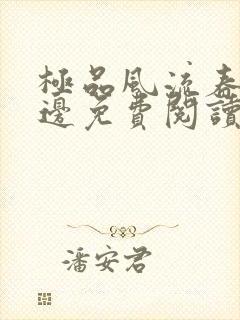 極品風流春
邊免費閱讀
潘安君